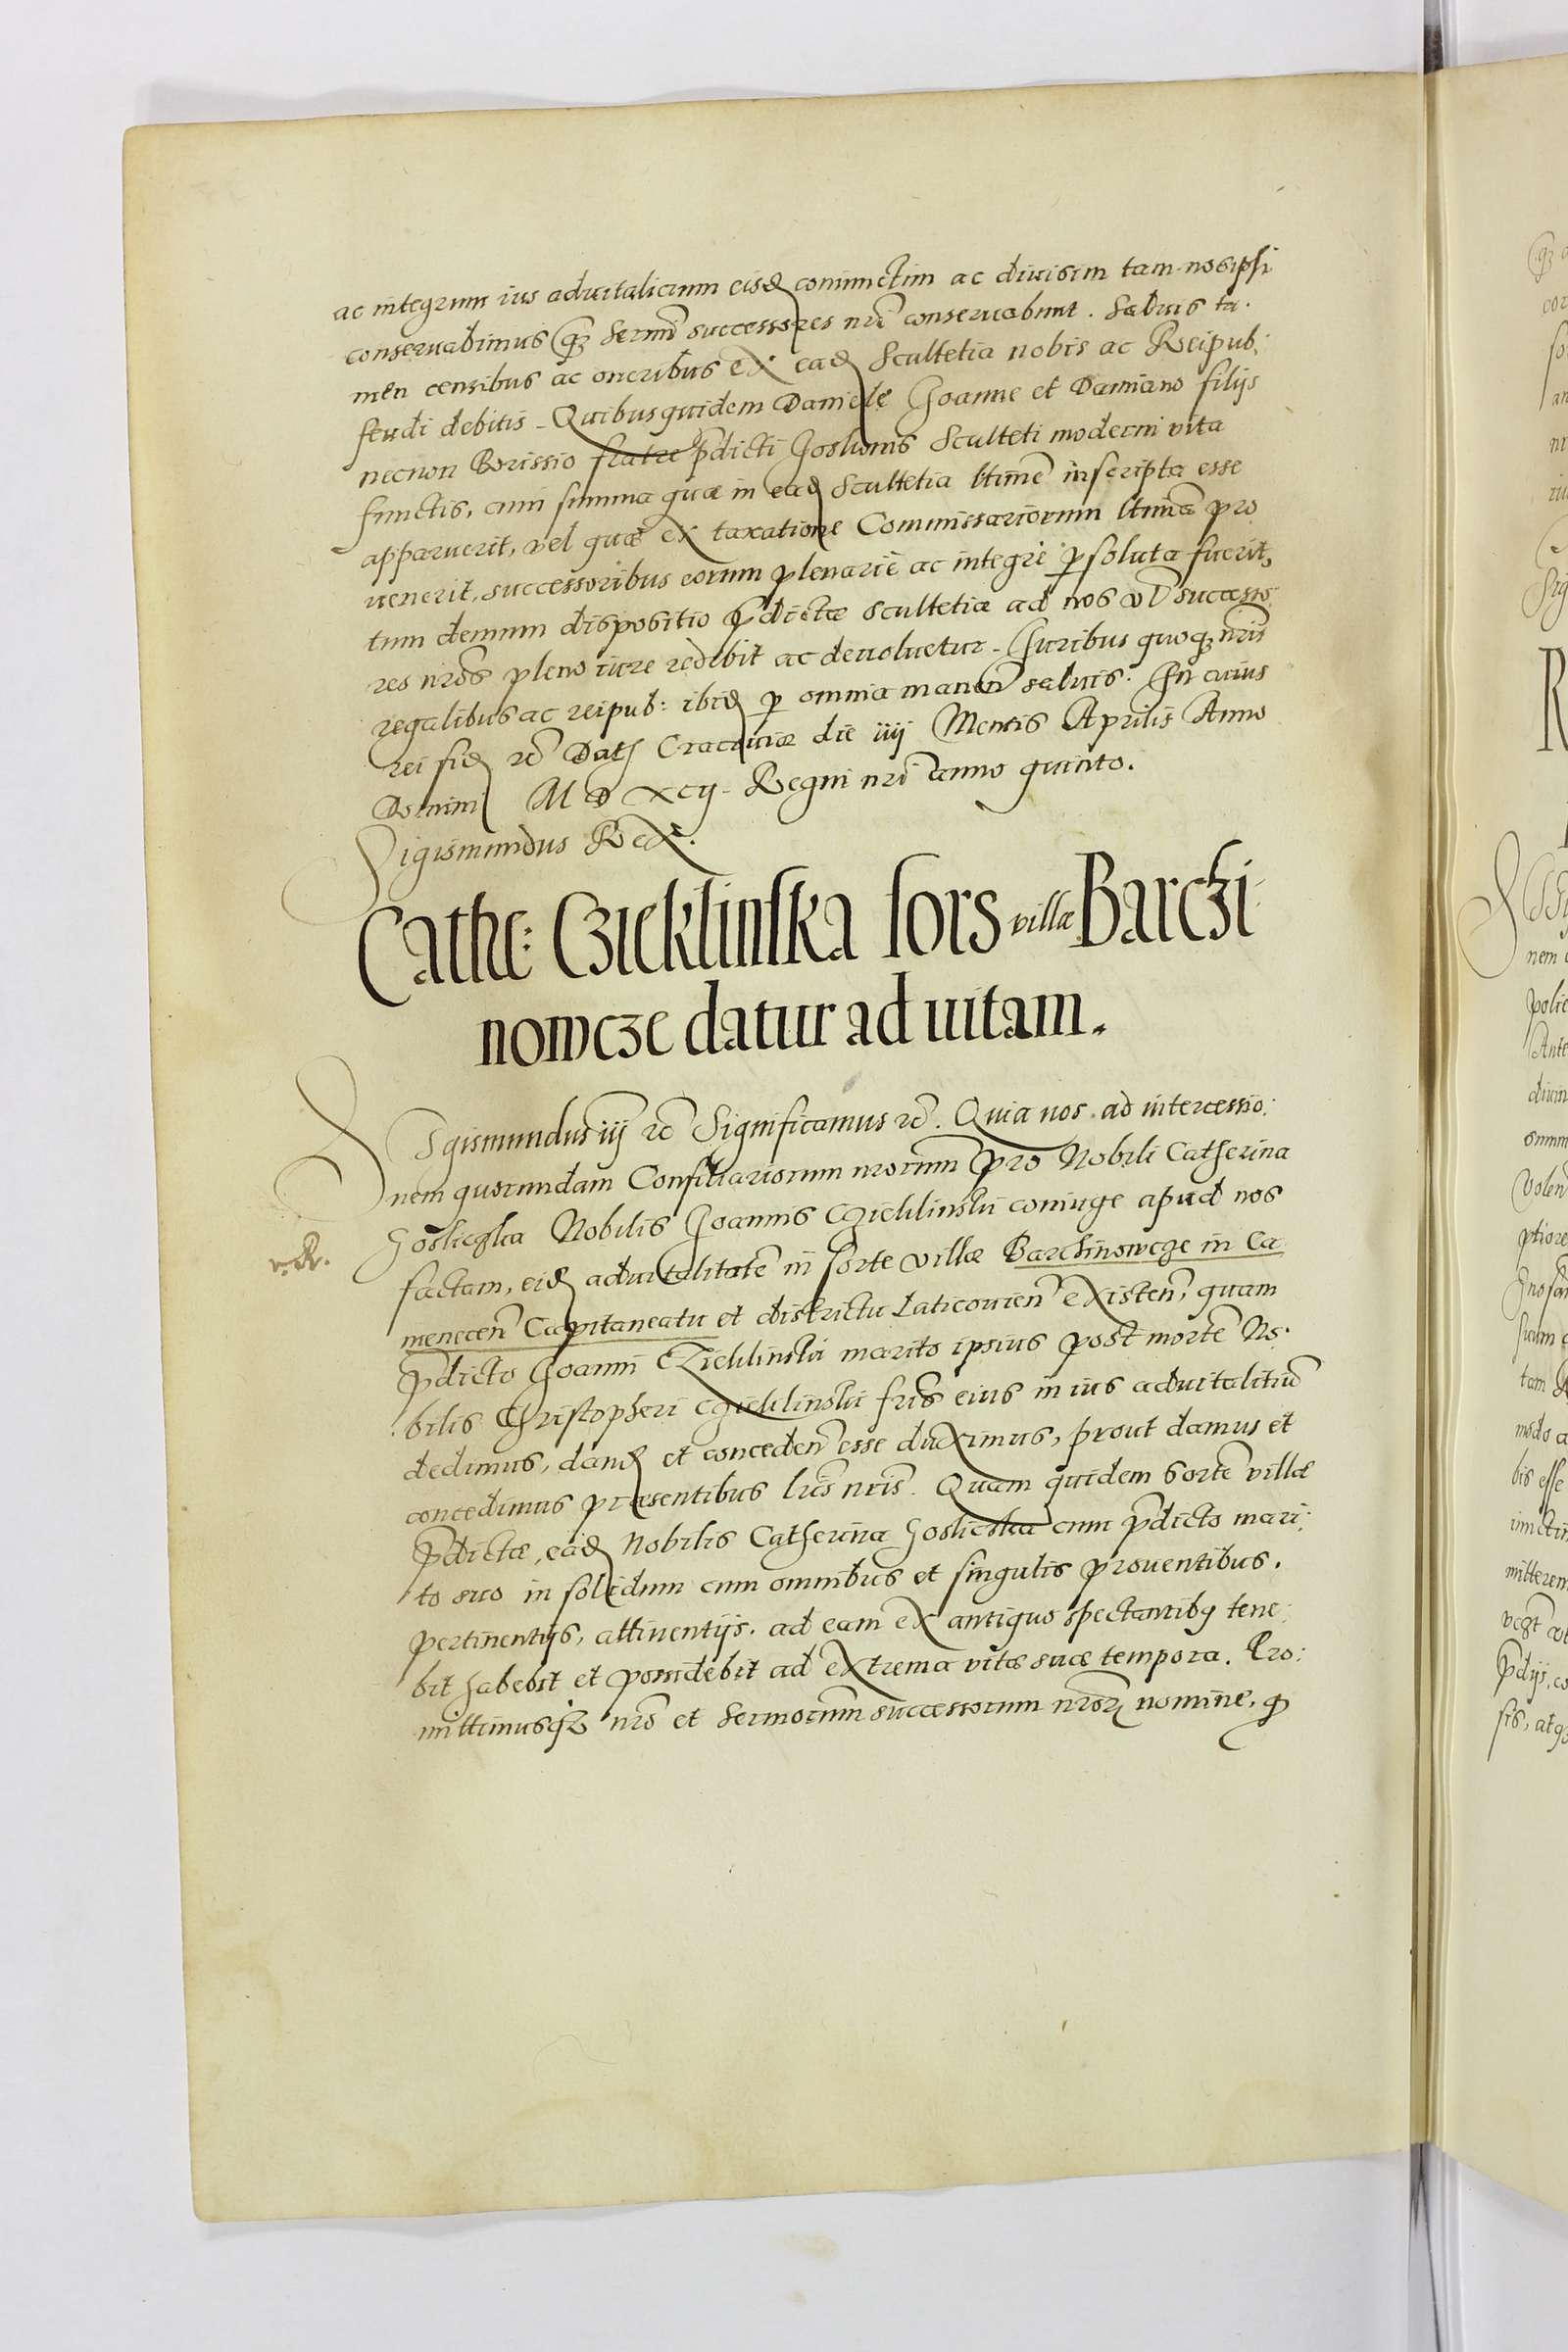 ac integrum ius aduitalicium eisd coniunctim ac diuisim tam nosipsi
conseruabimus qz Sermi successores nri conseruabunt. Saluis ta:
men censibus ac oneribus ex ead Scultetia nobis ac Reipub:
feudi debitis. Quibusquidem Daniele Joanne et Damiano filijs
necnon Borissio fratre pdicti Josionis Sculteti moderni vita
functis, cum summa quæ in ead Scultetia ltime inscripta esse
apparuerit, vel quæ ex taxatione Commissariorum ltima pro
uenerit, successoribus eorum plenariè ac integrè psoluta fuerit,
tum demum dispositio pdictæ Scultetiæ ad nos vl successo:
res nros pleno iure redibit ac deuoluetur. Juribus quoqz nris
regalibus ac reipub: ibid p omnia manen saluis. In cuius
rei fid rc Dat Cracouiæ die iiij Mensis Aprilis Anno
Domini M D xcij. Regni nri anno quinto.
Sigismundus Rex.
Cathe: Czieklinska sors villæ Barczi-
nowcze datur ad uitam.
Sigismundus iij rc Significamus rc. Quia nos ad intercessio:
nem quorundam Consiliariorum nrorum pro Nobili Catherina
Josliczka Nobilis Joannis Czieklinskii coniuge apud nos
factam, eid aduitalitatē in sorte villæ Barczinowcze in Ca
v. R.
menecen Capitaneatu et districtu Laticouien existen, quam
pdicto Joanni Czieklinskii marito ipsius post mortē No:
bilis Christopheri Czieklinskii fris eius in ius aduitalitiū
dedimus, dand et conceden esse duximus, prout damus et
concedimus præsentibus lris nris. Quam quidem sortē villæ
pdictæ, ead Nobilis Catherina Josliczka cum pdicto mari:
to suo in solidum cum omnibus et singulis prouentibus.
pertinentijs, attinentijs, ad eam ex antiquo spectantibq tene:
bit habebit et possidebit ad extrema vitæ suæ tempora. Pro:
mittimusqz nro et Sermorum successorum nror nomine, q